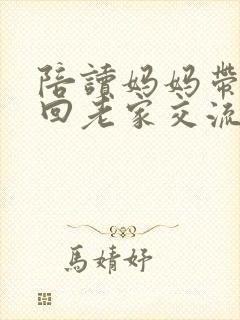 陪讀妈妈帶
回老家交流
馬婧妤